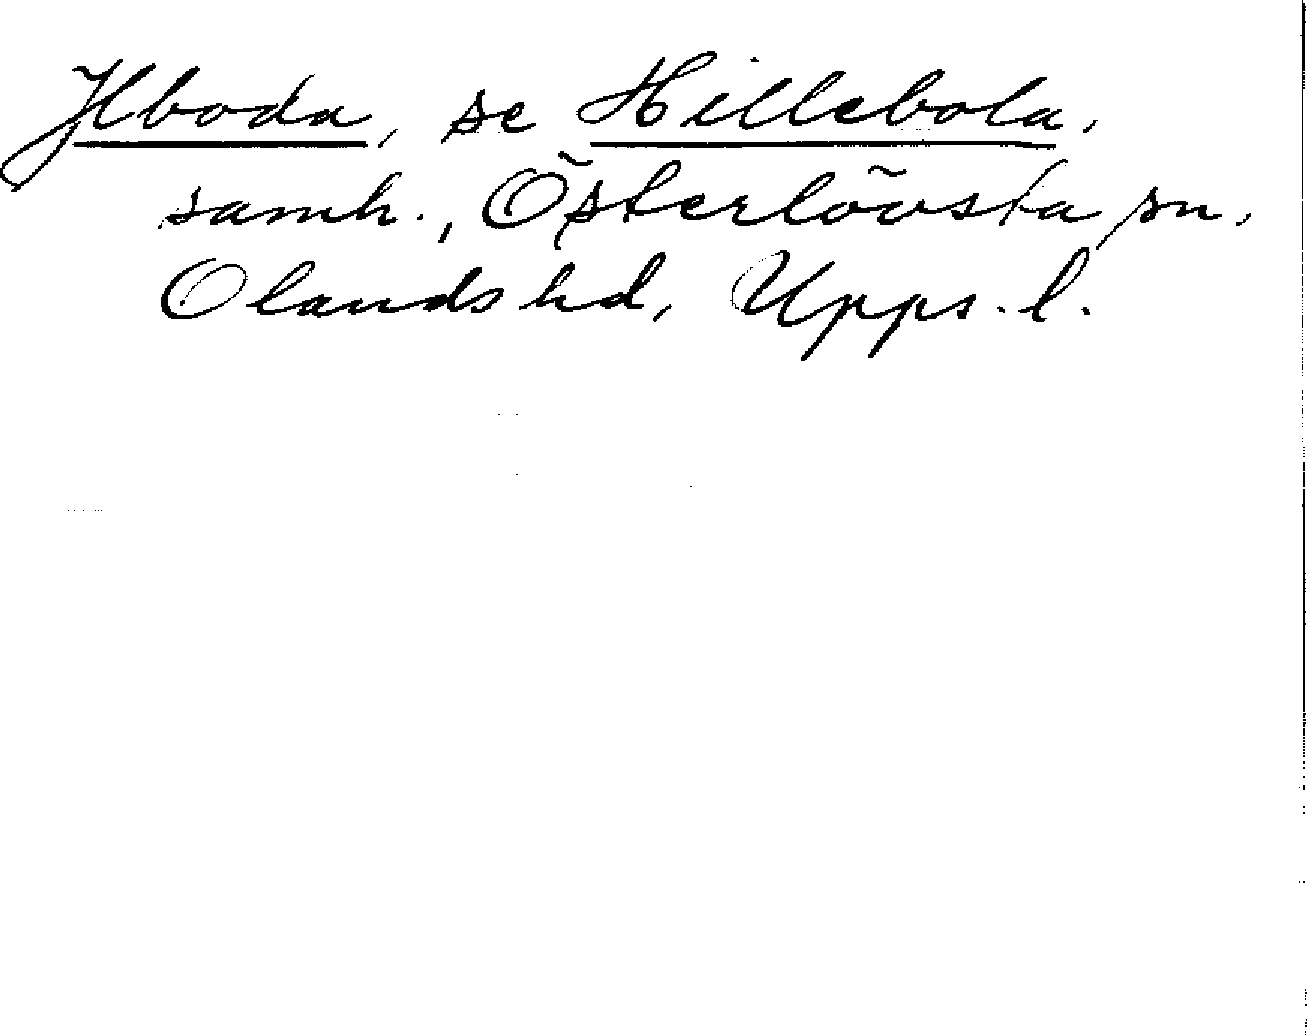 Ilboda, se Hillebola,
samh., Österlövsta sn,
Olands hd, Upps. l.